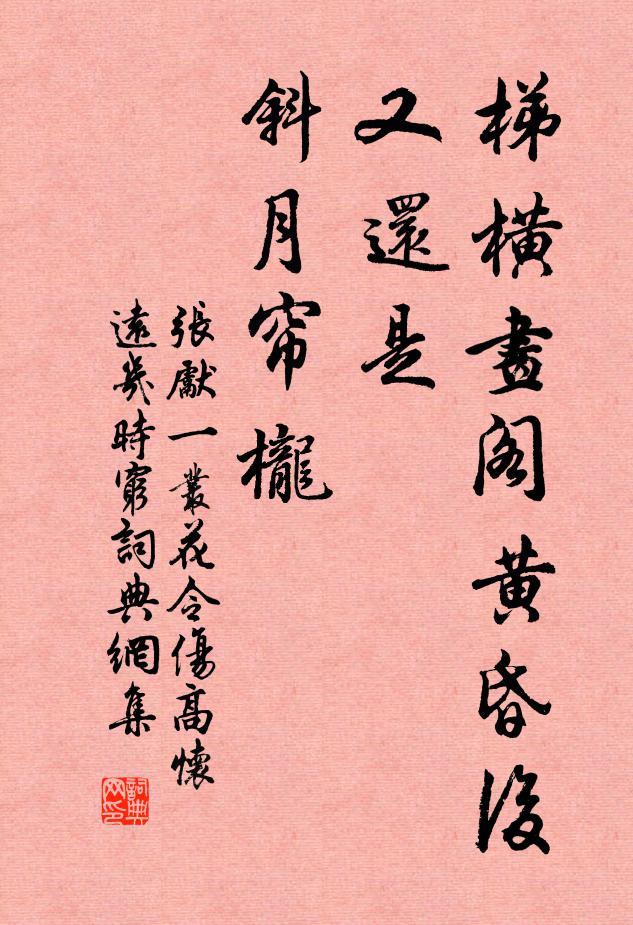 梯橫畫閣黃昏後
又還是
斜月帘櫳
張獻一叢花令傷高懷
遠幾時窮詞典網集
詞典
网印